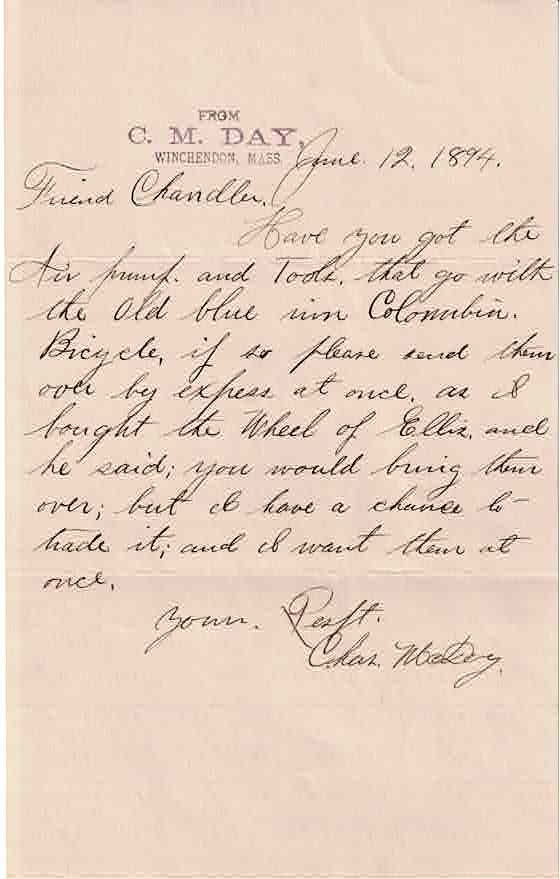 FROM
C. M. DAY,
WINCHENDON, MASS.
June. 12. 1894.
Friend Chandler.
Have you got the
Air pump. and Tools. that go with
the Old blue rim Colombia.
Bicycle, if so please send them
over by expess at once. as I
bought the Wheel of Ellis. and
he said; you would bring them
over; but I have a chance to
trade it; and I want them at
once.
yours. Resft.
Chas. M. Day.